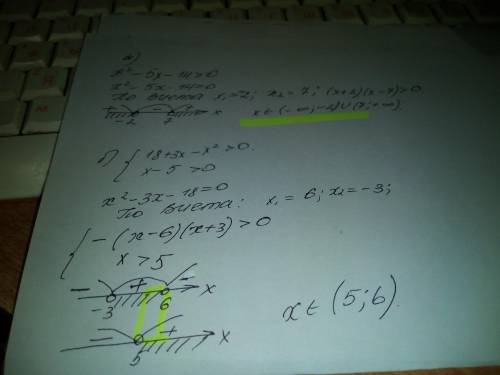 а)
x² - 5x - 14 > 0
x² - 5x - 14 = 0
По Виета x₁ = -2; x₂ = 7; (x+2)(x-7) > 0.
+ - + x
-2 7
x ∈ (-∞; -2) ∪ (7; +∞)
б) { 18 + 3x - x² > 0.
x - 5 > 0
x² - 3x - 18 = 0
По Виета: x₁ = 6; x₂ = -3;
{ -(x-6)(x+3) > 0
x > 5
- + - x
-3 6
- + x
5
x ∈ (5; 6).